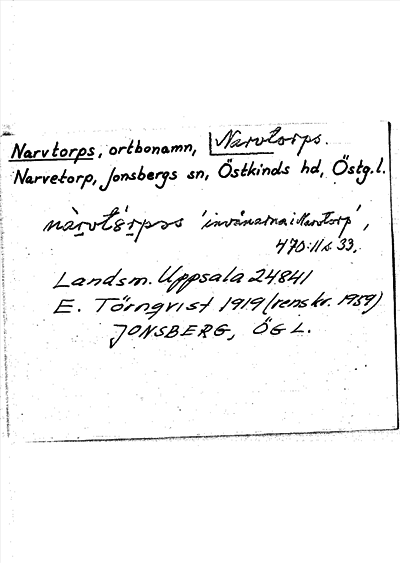 Narvtorps, ortbonamn, Narvtorps.
Narvetorp, Jonsbergs sn, Östkinds hd, Östg.l.
'invånarna i Narvtorp',
470:11 s 33,
Landsm. Uppsala 24841
E. Törnqvist 1919 (renskr. 1959)
JONSBERG, ÖGL.